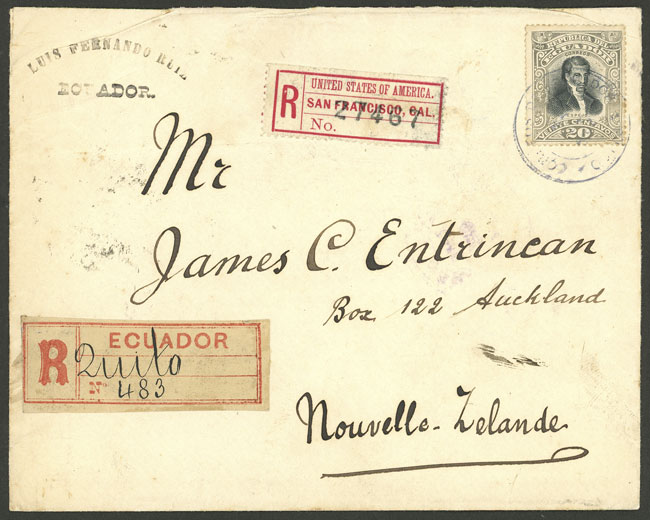 LUIS FERNANDO RUIZ
ECUADOR.
R
UNITED STATES OF AMERICA.
SAN FRANCISCO, CAL.
No. 27467
REPUBLICA DEL
ECUADOR
CORREOS
20
Mr
James C. Entrincan
Box 122 Auckland
R
ECUADOR
Quito
No 483
Nouvelle-Zelande